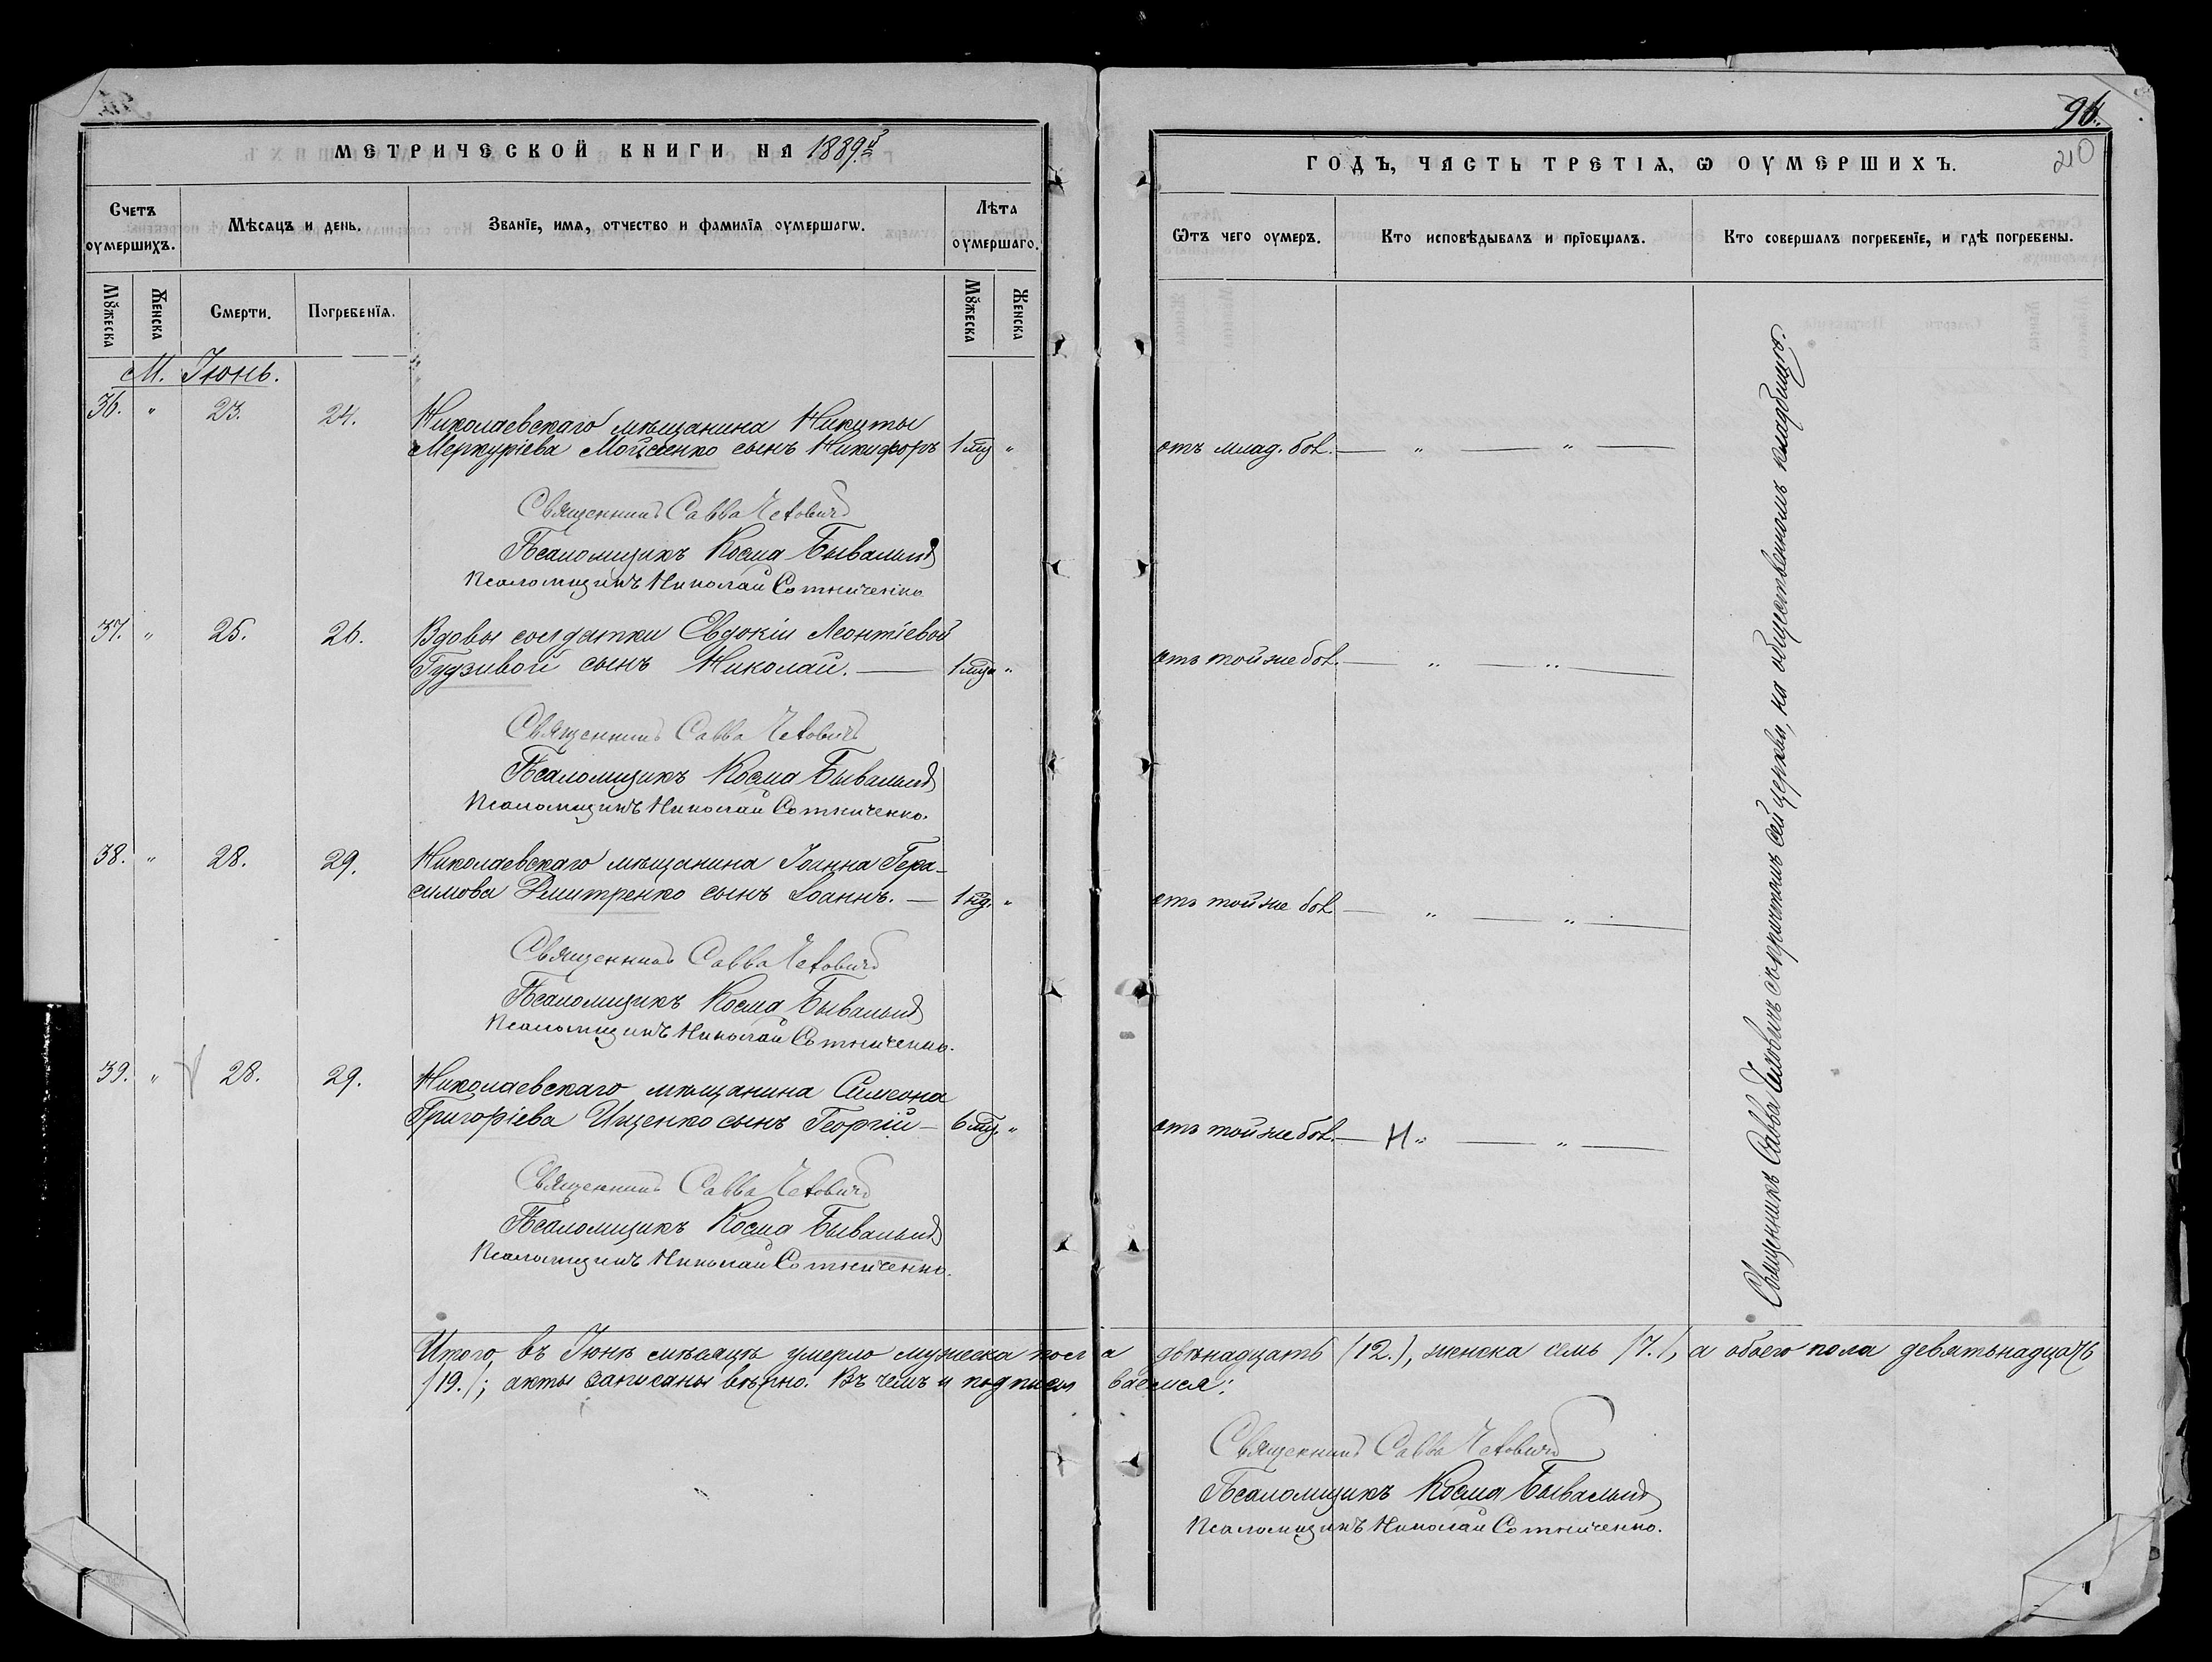 МЕТРИЧЕСКОЙ КНИГИ НА 1889й
Счетъ оумершихъ.
Мѣсяцъ и день.
Званїе, имѧ, отчество и фамилїѧ оумершагѡ.
Лѣта оумершаго.
Мꙋжеска
Женска
Смерти.
Погребенїѧ.
Мꙋжеска
Женска
М. Іюнь.
36. " 23. 24. Николаевскаго мѣщанина Никиты
Меркуріева Мойсеенко сынъ Никифоръ 1 мц "
Священникъ Савва Чехович
Псаломщикъ Косма Бывалый
Псаломщикъ Николай Сотниченко
37. " 25. 26. Вдовы солдатки Евдокіи Леонтіевой
Гудзивой сынъ Николай. 1 мца "
Священникъ Савва Чехович
Псаломщикъ Косма Бывалый
Псаломщикъ Николай Сотниченко.
38. " 28. 29. Николаевскаго мѣщанина Іоанна Гера-
симова Дмитренко сынъ Іоаннъ. 1 нд. "
Священникъ Савва Чехович
Псаломщикъ Косма Бывалый
Псаломщикъ Николай Сотниченко.
39. " 28. 29. Николаевскаго мѣщанина Симеона
Григоріева Ищенко сынъ Георгій 6 мц. "
Священникъ Савва Чехович
Псаломщикъ Косма Бывалый
Псаломщикъ Николай Сотниченко.
96.
210
ГОДЪ, ЧАСТЬ ТРЕТІѦ, Ѡ ОУМЕРШИХЪ.
Ѿтъ чего оумеръ.
Кто исповѣдывалъ и прїобщалъ.
Кто совершалъ погребенїе, и гдѣ погребены.
отъ млад. бол. " "
отъ той же бол. " "
отъ той же бол. " "
отъ той же бол. Н " "
Священникъ Савва Чеховичъ съ причтомъ сей церкви, на общественномъ кладбищѣ.
Итого въ Іюнѣ мѣсяцѣ умерло мужеска пола двѣнадцать /12./, женска семь /7./, а обоего пола девятьнадцать
/19./; акты записаны вѣрно. Въ чемъ и подписываемся:
Священникъ Савва Чехович
Псаломщикъ Косма Бывалый
Псаломщикъ Николай Сотниченко.